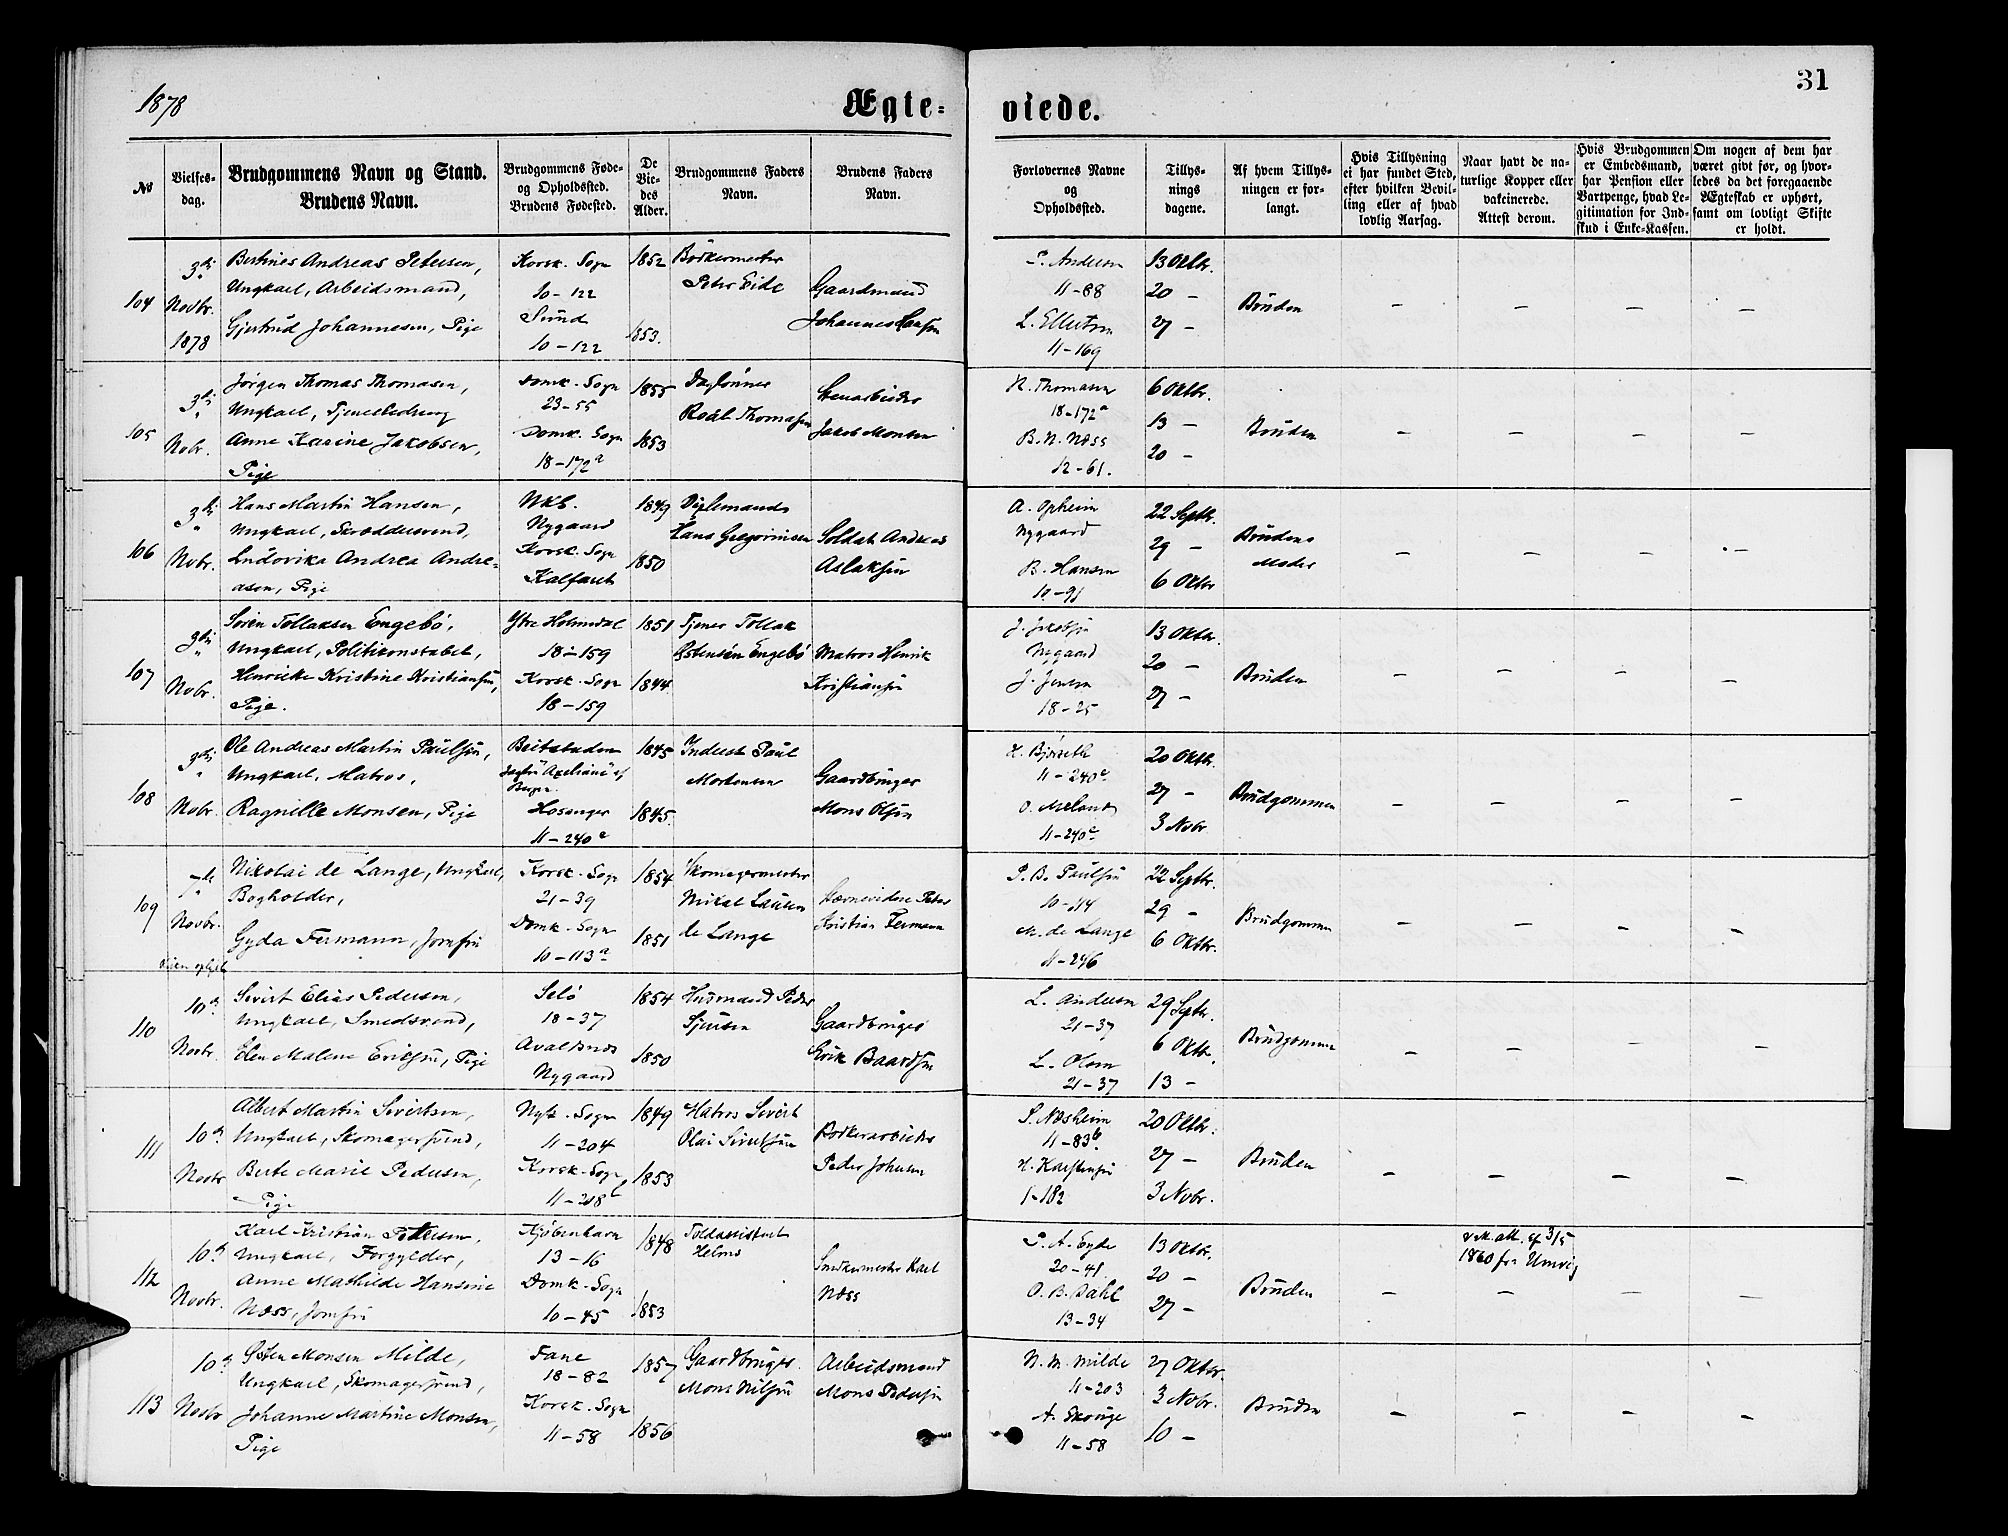 1878
Ægte-
viede.
31
No
Vielses-
dag.
Brudgommens Navn og Stand.
Brudens Navn.
Brudgommens Føde-
og Opholdssted.
Brudens Fødested.
De
Vie-
des
Alder.
Brudgommens Faders
Navn.
Brudens Faders
Navn.
Forlovernes Navne
og
Opholdssted.
Tillys-
nings
dagene.
Af hvem Tillys-
ningen er for-
langt.
Hvis Tillysning
ei har fundet Sted,
efter hvilken Bevil-
ling eller af hvad
lovlig Aarsag.
Naar havt de na-
turlige Kopper eller
vakcinerede.
Attest derom.
Hvis Brudgommen
er Embedsmand,
har Pension eller
Vartpenge, hvad Le-
gitimation for Ind-
skud i Enke-Kassen.
Om nogen af dem har
været givt før, og hvor-
ledes da det foregaaende
Ægteskab er ophørt,
samt om lovligt Skifte
er holdt.
104
3die
Novbr.
1878
Bertines Andreas Petersen,
Ungkarl, Arbeidsmand,
Gjertrud Johannesen, Pige
Korsk. Sogn
10-122
Sund
10-122
1852
1853.
Bödkermester
Peter Eide
Gaardmand
Johannes Hansen
P. Andersen
11-88
L. Ellertsen
11-169
13 Oktbr.
20 -
27 -
Bruden
- - - -
105
3die
Nobr.
Jørgen Thomas Thomasen,
Ungkarl, Tjenestedreng
Anne Karine Jakobsen,
Pige
Domk. Sogn
23-55
Domk. Sogn
18-172a
1855
1853
Daglönner
Roald Thomasen
Stenarbeider
Jakob Monsen
N. Thomasen
18-172a
B. N. Næss
12-61.
6 Oktbr.
13 -
20 -
Bruden
- - - -
106
3die
Nobr.
Hans Martin Hansen,
Ungkarl, Skræddersvend,
Ludovika Andrea Andre-
asen, Pige
Nykb.
Nygaard
Korsk. Sogn
Kalfaret
1849
1850
Hans Gregoriusen
Soldat Andreas
Aslaksen
A. Opheim
Nygaard
B. Hansen
10-91
22 Septbr.
29 -
6 Oktbr
Brudens
Moder
- - - -
107
3die
Nobr.
Sören Tollaksen Engebö,
Ungkarl, Politikonstabel,
Henrikke Kristine Kristiansen,
Pige.
Ytre Holmedal
18-159
Korsk. Sogn
18-159
1851
1844
Tjener Tollak
Østensen Engebö
Matros Henrik
Kristiansen
J. Jakobsen
Nygaard
J. Jensen
18-25
13 Oktbr.
20 -
27 -
Bruden
- - - -
108
3die
Nobr.
Ole Andreas Martin Paulsen,
Ungkarl, Matros,
Ragnille Monsen, Pige
Beitstaden
Hosanger
11-240e
1845
1845.
Inderst Paul
Mortensen
Gaardbruger
Mons Olsen
H. Bjørseth
11-240e
O. Meland
11-240e
20 Oktbr.
27 -
3 Nobr
Brudgommen
- - - -
109
7de
Novbr.
Nikolai de Lange, Ungkarl,
Bogholder,
Gyda Fermann, Jomfru
Korsk. Sogn
21-39
Domk. Sogn
10-113a
1854
1851
Skomagermester
Mikal Lauritz
de Lange
Peter
Kristian Fermann
P. B. Paulsen
10-114
M. de Lange
11-246
22 Septbr.
29 -
6 Oktbr.
Brudgommen
- - - -
110
10de
Novbr.
Sivert Elias Pedersen,
Ungkarl, Smedsvend,
Elen Malene Eriksen, Pige
Selö
18-37
Avaldsnes
Nygaard
1854
1850
Husmand Peder
Sjursen
Gaardbruger
Erik Baardsen
L. Andersen
21-37
L. Olsen
21-37
29 Septbr.
6 Oktbr.
13 -
Brudgommen
- - - -
111
10de
Novbr
Albert Martin Sivertsen,
Ungkarl, Skomagersvend,
Berte Marie Pedersen,
Pige
Nyk. Sogn
11-204
Korsk. Sogn
11-208b
1849
1853
Matros Sivert
Olai Sivertsen
Bødkerarbeider
Peder Johnsen
S. Næsheim
11-83b
H. Karstensen
1-182
20 Oktbr.
27 -
3 Nobr.
Bruden
- - - -
112
10de
Novbr.
Karl Kristian Petersen,
Ungkarl, Forgylder,
Anne Mathilde Hansine
Næss, Jomfru
Kjøbenhavn
13-16
Domk. Sogn
10-45
1848
1853
Toldassistent
Helms
Snedkermester Karl
Næss
P. A. Eyde
20-41.
O. B. Dahl
13-34
13 Oktbr.
20 -
27 -
Bruden
-
att. af 3/5
1860 fra
- -
113
10de
Novbr
Østen Monsen Milde,
Ungkarl, Skomagersvend,
Johanne Martine Monsen,
Pige
Fane
18-82
Korsk. Sogn
11-58
1857
1856
Gaardbruger
Mons Nilsen
Arbeidsmand
Mons Pedersen
N. M. Milde
11-203
A. Skouge
11-58
27 Oktbr.
3 Nobr.
10 -
Bruden
- - - -